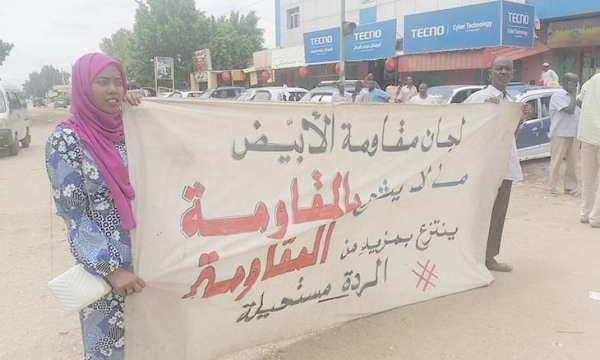 TECNO
TECNO
TECNO
Cyber Technology
TECNO
لجان مقاومة الأبيّض
ما لا ينتزع بالمقاومة
ينتزع بمزيد من المقاومة
#الردة_مستحيلة